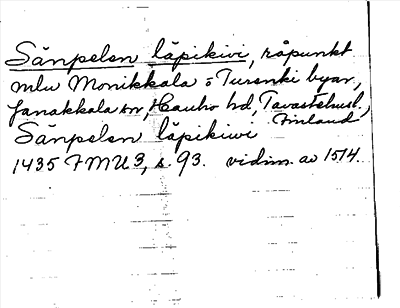 Sänpelen läpikivi, råpunkt
mlu Monikkala o Turenki byar,
Janakkala sn, Hauho hd, Tavastehusl.,
Finland
Sänpelen läpikiwi
1435 FMU 3, s. 93. vidim. av 1514.